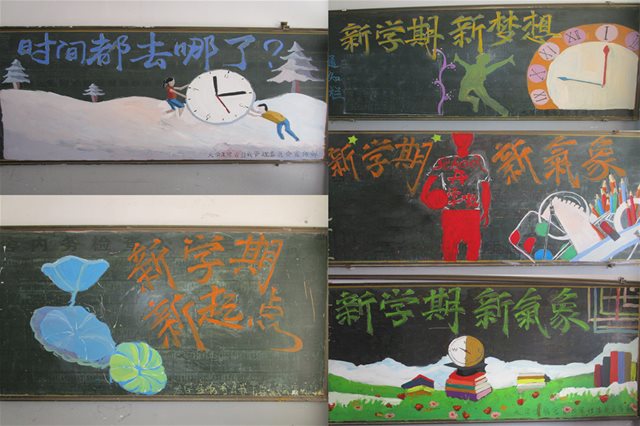 时间都去哪了?
新学期 新梦想
通知栏
新学期 新氣象
内务检
新学期
新起点
新学期 新氣象